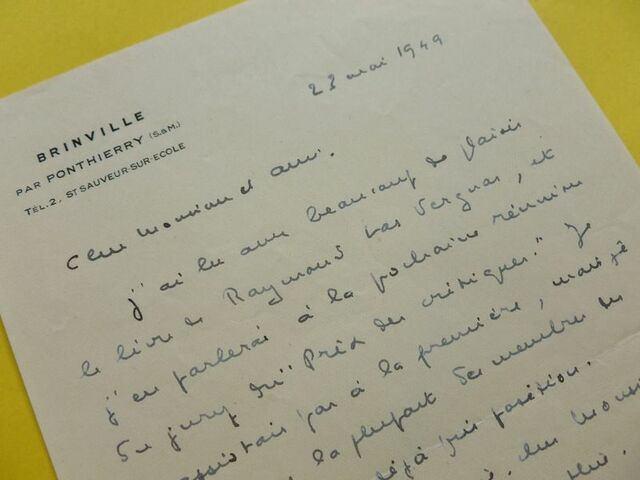 23 mai 1949
BRINVILLE
PAR PONTHIERRY (S.&M.)
TÉL. 2, ST SAUVEUR-SUR-ECOLE
Cher Monsieur et ami.
J'ai lu avec beaucoup de plaisir
le livre de Raymond Las Vergnas, et
j'en parlerai à la prochaine réunion
du jury du "Prix des critiques". Je
assistais pas à la première, mais je
la plupart des membres du
déjà pris position.